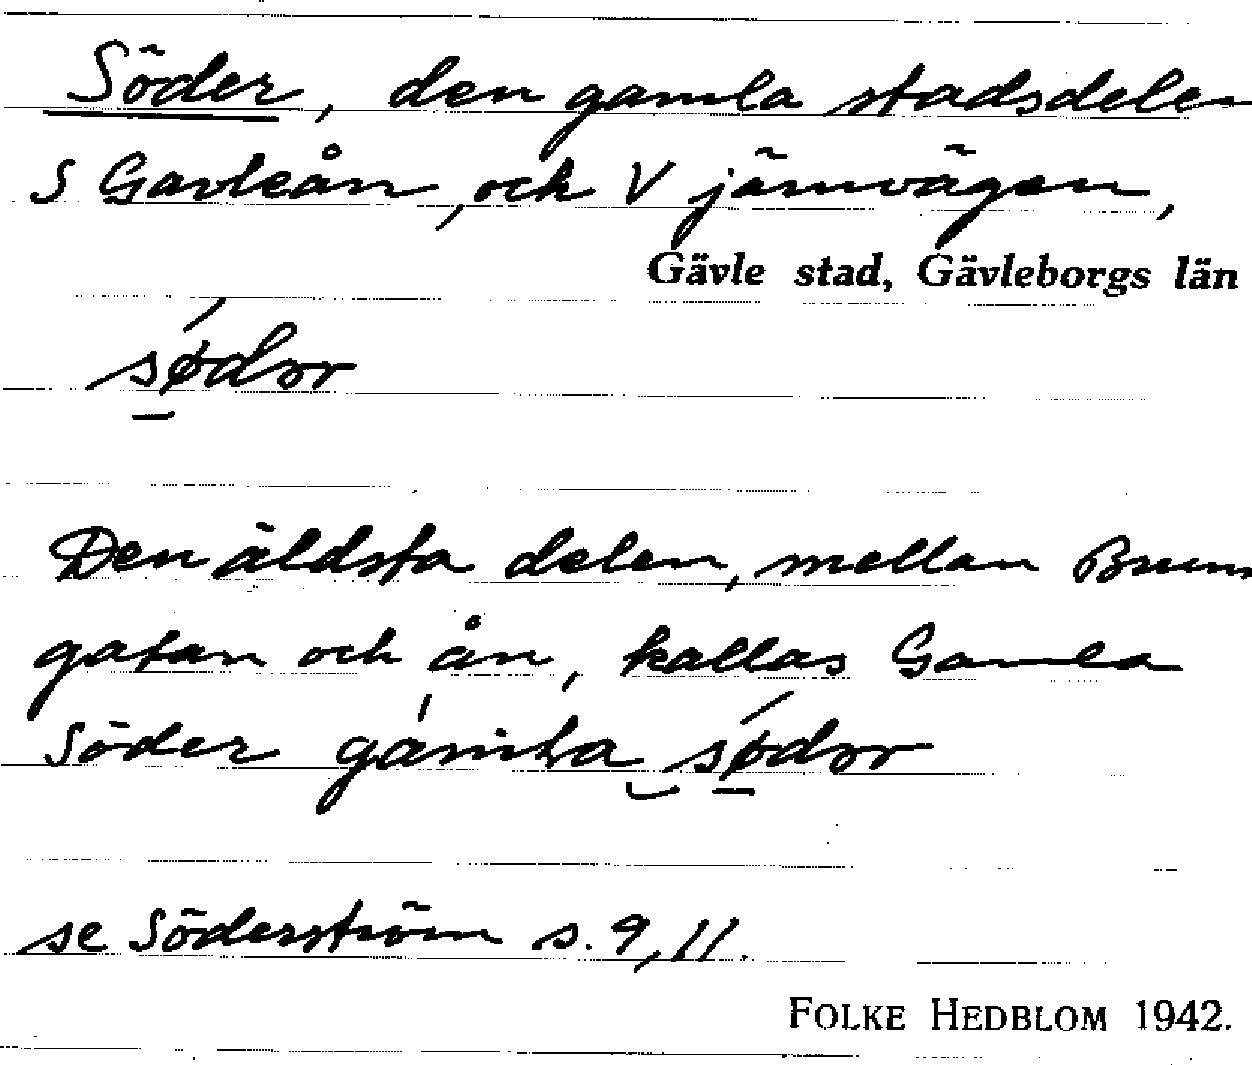 Söder, den gamla stadsdelen
S Gavleån, och V järnvägen,
Gävle stad, Gävleborgs län
södər
Den äldsta delen, mellan Brunns
gatan och ån, kallas Gamla
Söder gamla södər
se Söderström s. 9, 11.
FOLKE HEDBLOM 1942.